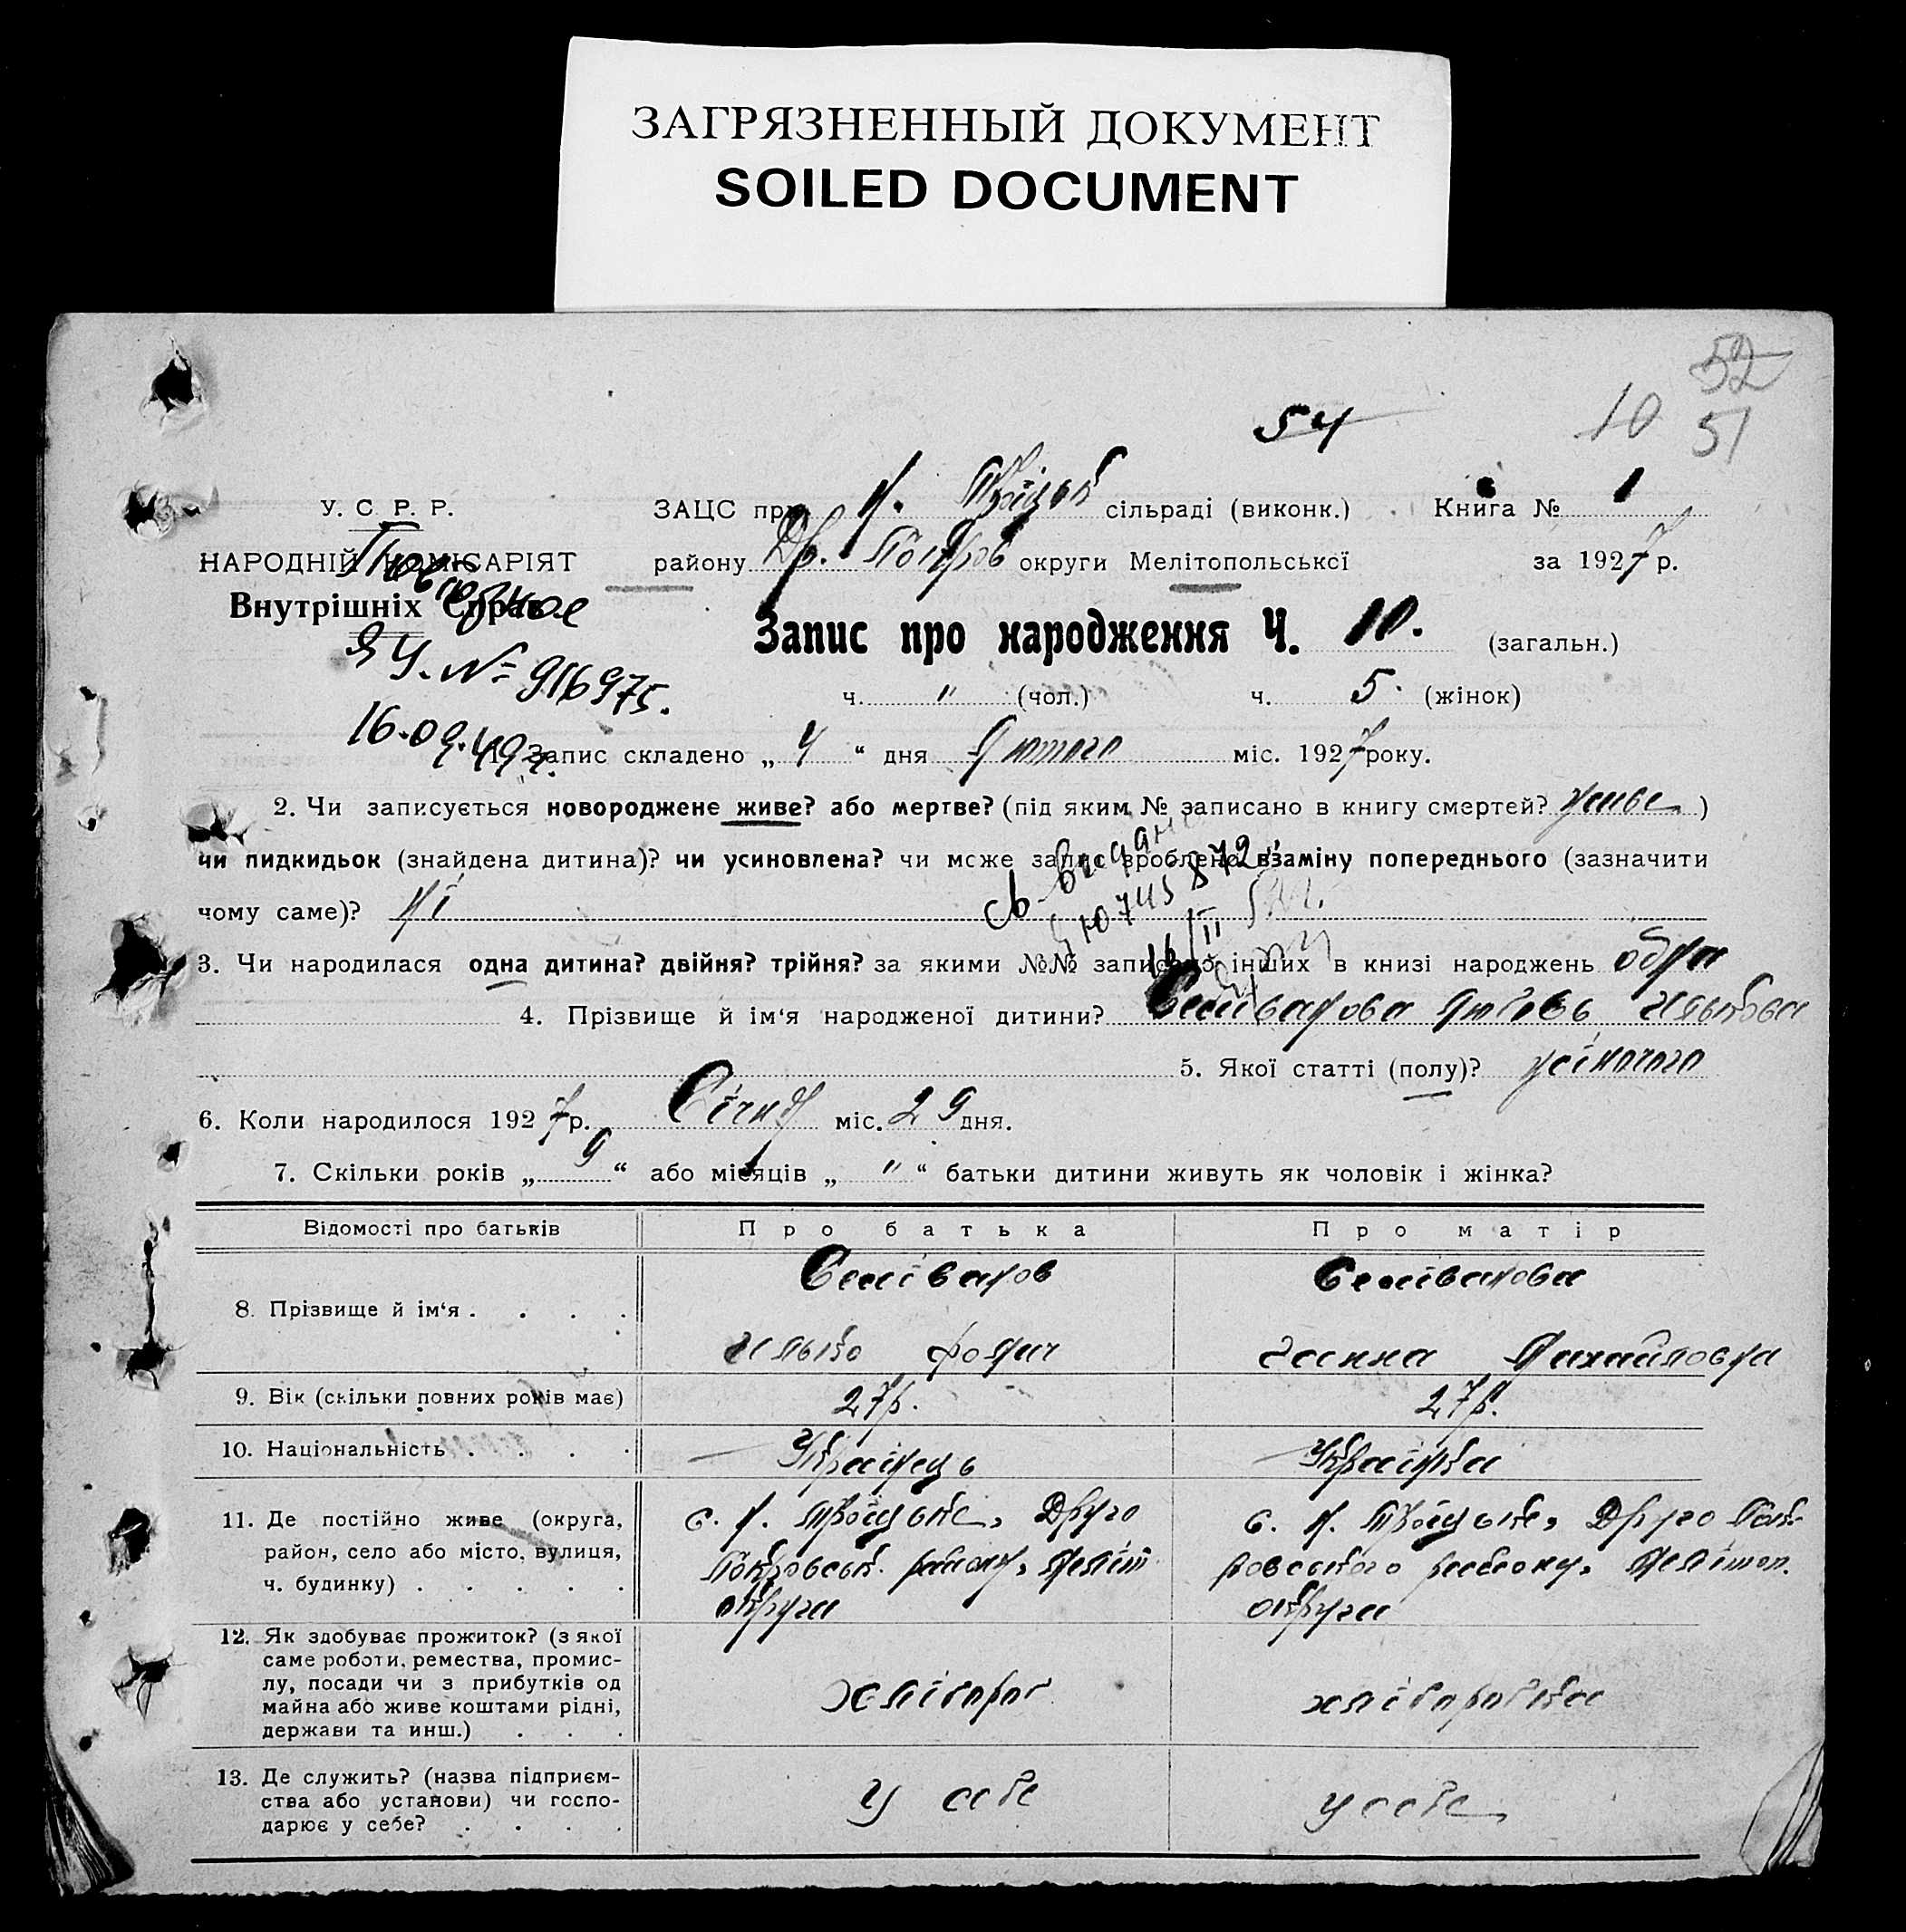 ЗАГРЯЗНЕННЫЙ ДОКУМЕНТ
SOILED DOCUMENT
52
54
10 51
У. С. Р. Р. ЗАЦС при Н. Троїцьк сільраді (виконк.) Книга № 1
НАРОДНІЙ КОМІСАРІЯТ району Др. Покров округи Мелітопольської за 1927 р.
Повторное
Внутрішніх Справ
Запис про народження Ч. 10. (загальн.)
ЯЧ. № 916975.
ч. " (чол.) ч. 5. (жінок)
16.09.49г.
1. Запис складено „ 4 “ дня Лютого міс. 1927 року.
2. Чи записується новороджене живе? або мертве? (під яким № записано в книгу смертей? живе )
чи пидкидьок (знайдена дитина)? чи усиновлена? чи може запис зроблено взаміну попереднього (зазначити
чому саме)? Ні
св. выдано
ЯЮ 745872
16/II
3. Чи народилася одна дитина? двійня? трійня? за якими №№ записано інших в книзі народжень одна
4. Прізвище й ім‘я народженої дитини? Селіванова Любовь Ильковa
5. Якої статті (полу)? жіночого
6. Коли народилося 1927 р. Січня міс. 29 дня.
7. Скільки років „ 9 “ або місяців „ " “ батьки дитини живуть як чоловік і жінка?
Відомості про батьків Про батька Про матір
8. Прізвище й ім‘я . . . . Селіванов Селіванова
Илько Ганна Михайловна
9. Вік (скільки повних років має) 27 р. 27 р.
10. Національність . . . . Українець Українка
11. Де постійно живе (округа, с. Н. Троїцьке, Друго с. Н. Троїцьке, Друго Пок-
район, село або місто, вулиця, Покровськ. району, Меліт ровського району, Мелітоп.
ч. будинку) . . . . . округи округи
12. Як здобуває прожиток? (з якої
саме роботи, ремества, промис-
лу, посади чи з прибутків од хлібороб хліборобка
майна або живе коштами рідні,
держави та инш.) . . .
13. Де служить? (назва підприєм-
ства або установи) чи госпо- у себе у себе
дарює у себе? . . . .